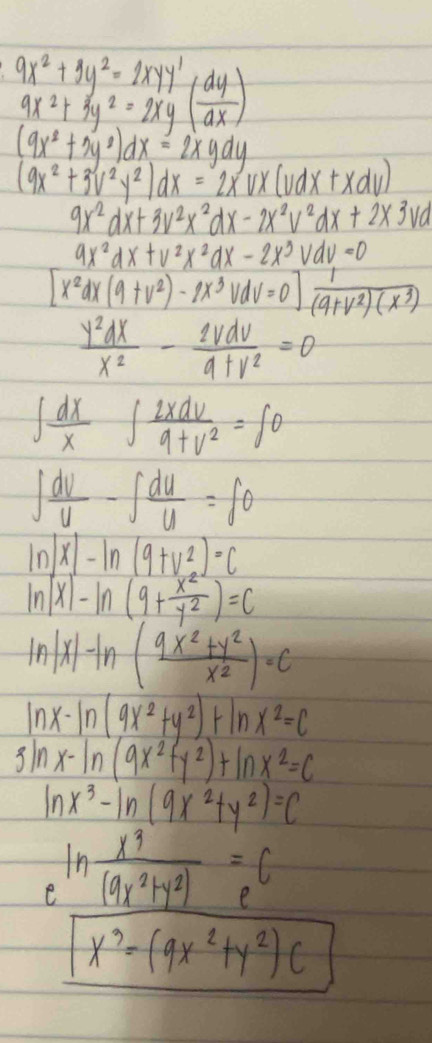 9x² + 3y² = 2xyy'
9x² + 3y² = 2xy (dy/dx)
(9x² + 3y²)dx = 2xydy
(9x² + 3v²y²)dx = 2x vx (vdx + xdv)
9x²dx + 3v²x²dx - 2x²v²dx + 2x3vd
9x²dx + v²x²dx - 2x³vdv = 0
[x²dx(9+v²) - 2x³vdv = 0] 1/(9+v²)(x³)
y²dx/x² - 2vdv/9+v² = 0
∫dx/x ∫2xdv/9+v² = ∫0
∫dv/u - ∫du/u = ∫0
ln|x| - ln(9+v²) = C
ln|x| - ln(9+x²/y²) = C
ln|x| - ln(9x²+y²/x²) = C
lnx - ln(9x²+y²) + lnx² = C
3lnx - ln(9x²+y²) + lnx² = C
lnx³ - ln(9x²+y²) = C
e ln x³/(9x²+y²) = e C
x³ = (9x²+y²)C